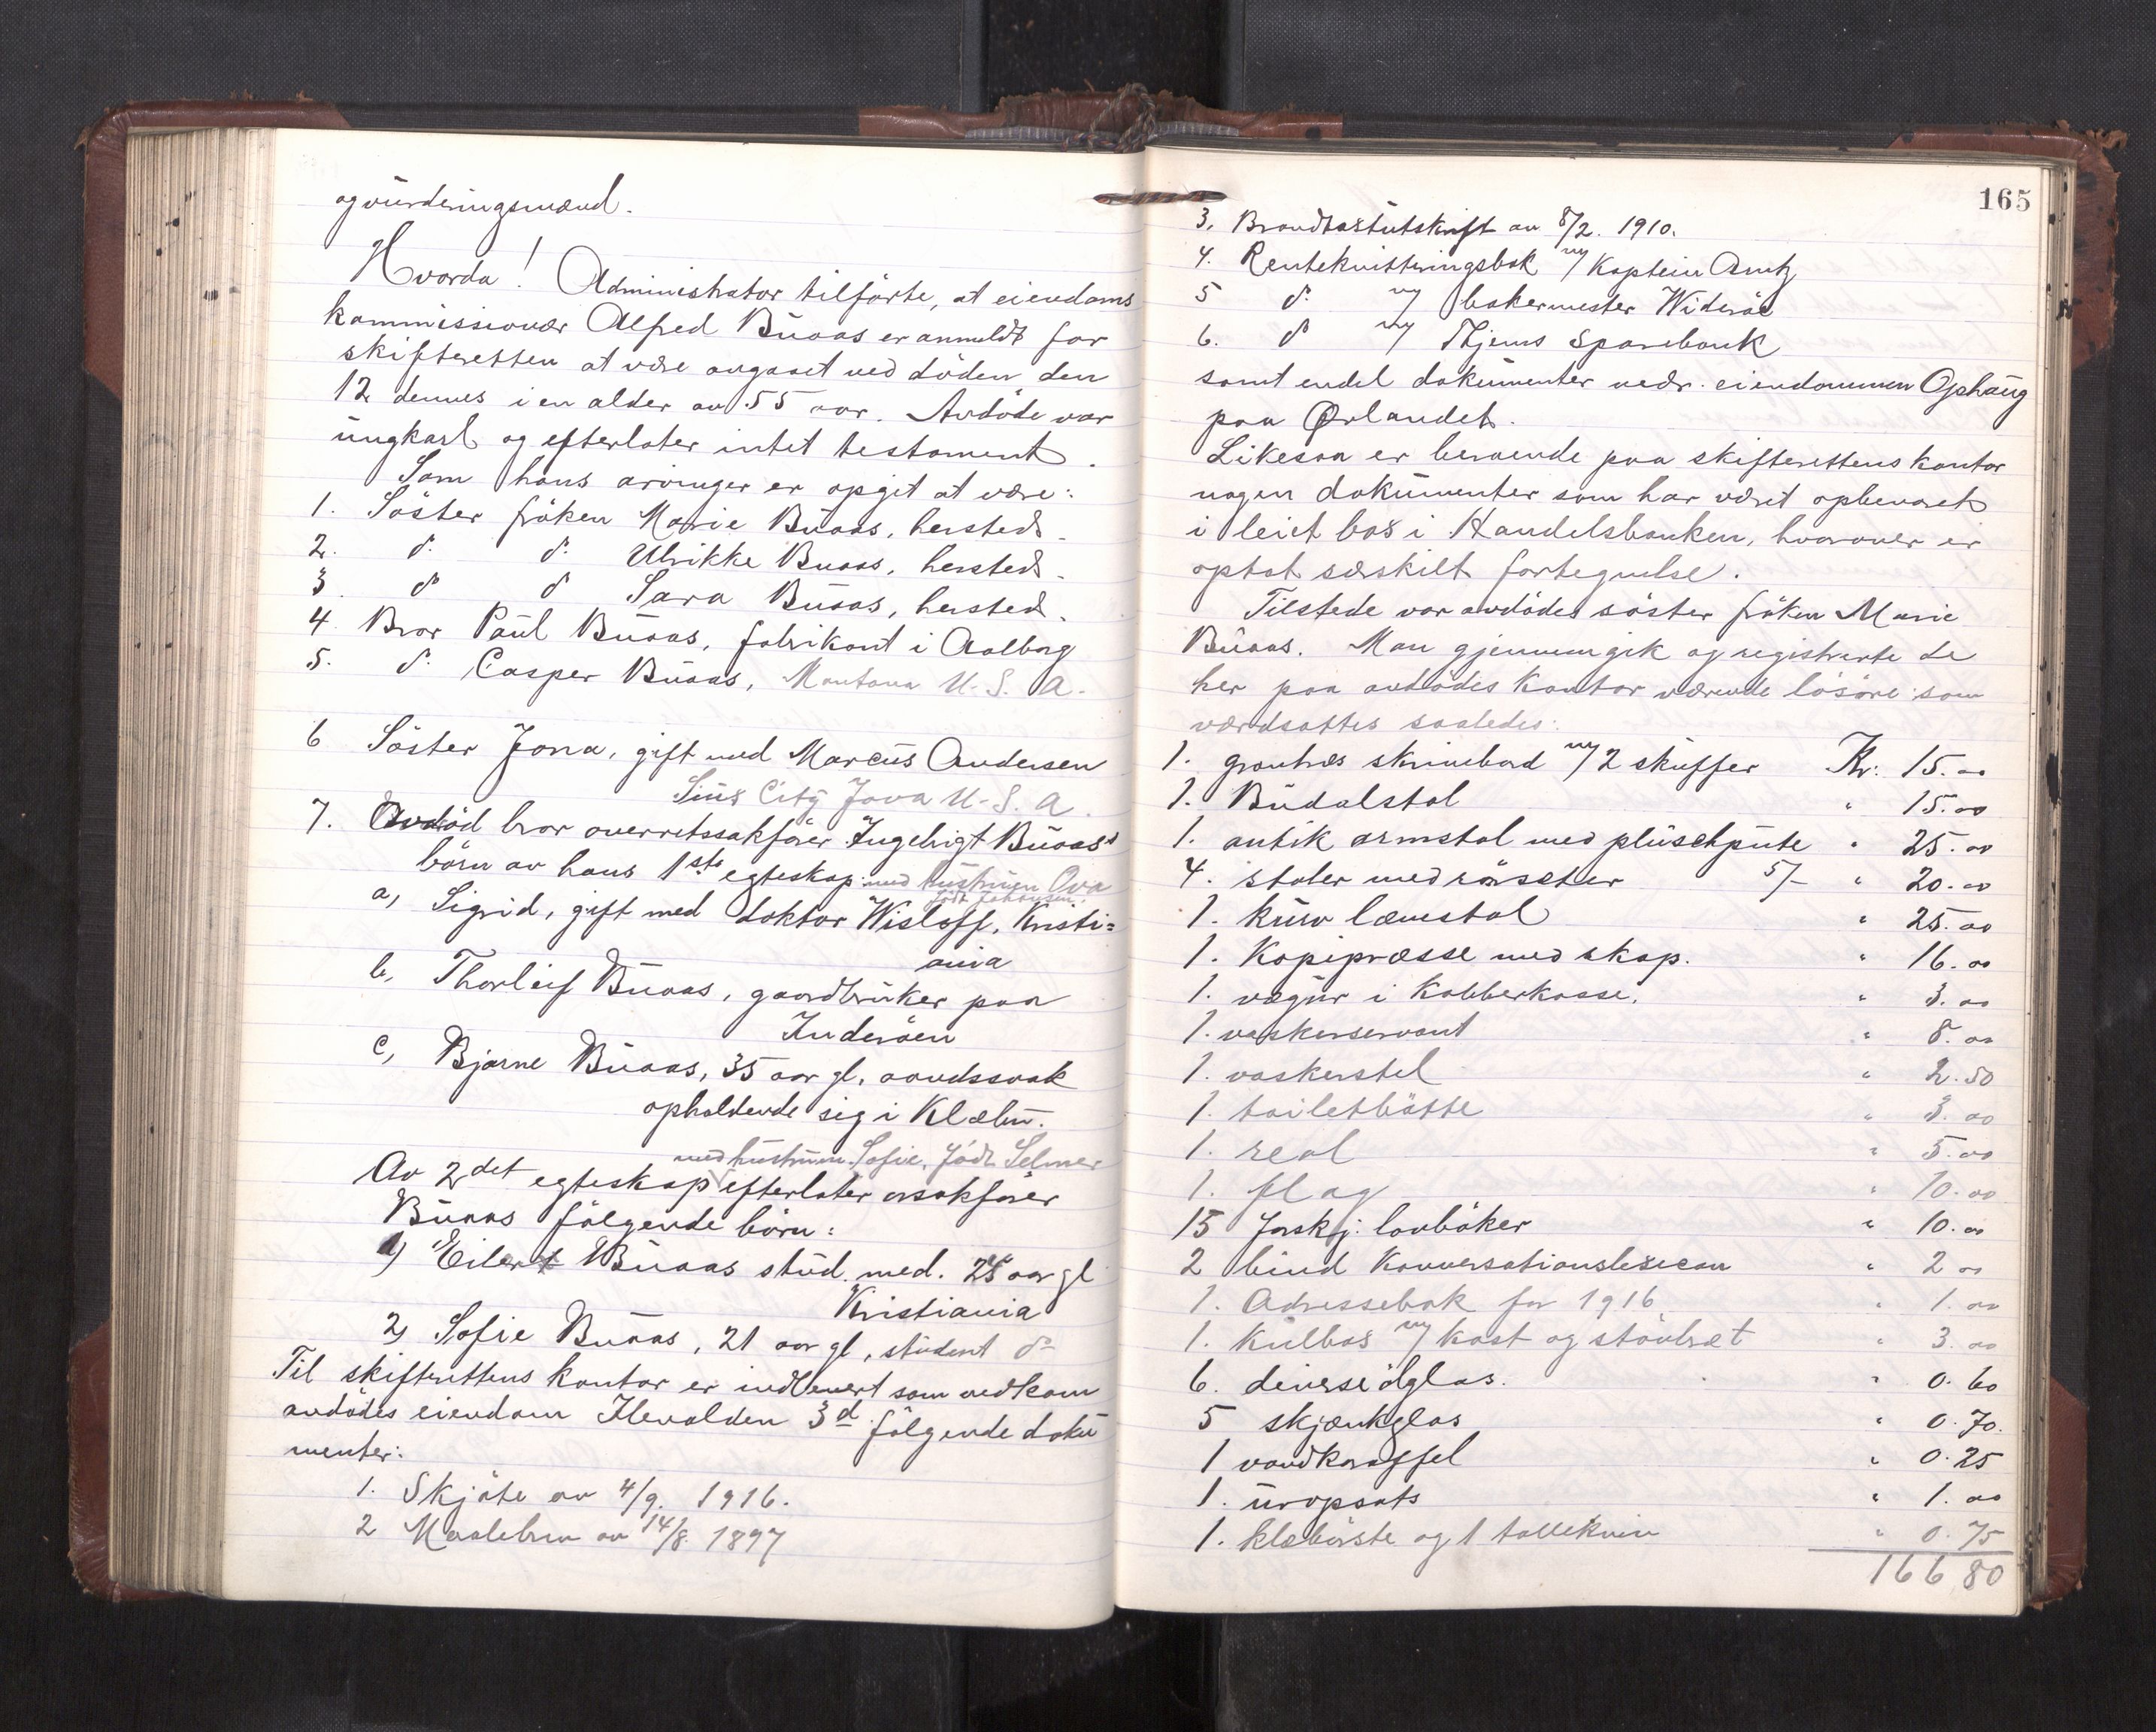 og vurderingsmænd.
Hvorda! Administrator tilførte, at eiendoms
kommissionær Alfred Buaas er anmeldt for
skifteretten at være avgaaet ved döden den
12 dennes i en alder av 55 aar. Avdöde var
ungkarl og efterlater intet testament.
Som hans arvinger er opgit at være:
1. Söster fröken Marie Buaas, hersteds.
2. do. do. Ulrikke Buaas, hersteds.
3. do do Sara Buaas, hersted.
4. Bror Paul Buaas, fabrikant i Aalborg
5. do. Casper Buaas, Montana U.S.A.
6 Söster Jona, gift med Marcus Andersen
Siux City Jova U.S.A.
7. Avdöd bror overretssakförer Ingebrigt Buaas'
börn av hans 1ste egteskap med hustruen Ova
födt Johansen.
a, Sigrid, gift med doktor Wisloff, Kristi=
ania
b, Thorleif Buaas, gaardbruker paa
Inderöen
c, Bjarne Buaas, 35 aar gl. aandssvak
opholdende sig i Klæbu.
med hustruen Sofie, födt Selmer
Av 2det egteskap efterlater orsakförer
Buaas fölgende börn:
1) Eilert Buaas stud. med. 25 aar gl
Kristiania
2) Sofie Buaas, 21 aar gl, student do
Til skifterettens kontor er indlevert som vedkom
avdödes eiendom Ilevolden 3d. fölgende doku
menter:
1. Skjöte av 4/9. 1916.
2 Maalebrev av 14/8. 1897
165
3. Brandtakstutskrift av 8/2. 1910.
4. Rentekvitteringsbok m/ Kaptein Arntz
5 do. m/ bakermester Wideröe
6. do m/ Thjems Sparebank
samt endel dokumenter vedr. eiendommen Ophaug
paa Ørlandet.
Likesaa er beroende paa skifterettens kontor
nogen dokumenter som har været opbevaret
i leiet box i Handelsbanken, hvorover er
optat særskilt fortegnelse.
Tilstede var avdödes söster fröken Marie
Buaas. Man gjennemgik og registrerte de
her paa avdödes kontor værende lösöre som
værdsattes saaledes:
1. grantræs skrivebord m/ 2 skuffer Kr: 15.00
1. Budalstol " 15.00
1. antik armstol med plüschpute " 25.00
4. stoler med rörsæter 5/- " 20.00
1. kurv lænestol " 25.00
1. Kopipræsse med skap. " 16.00
1. vægur i Kobberkasse. " 3.00
1. vaskerservant " 8.00
1. vaskerstel " 2.50
1. toiletbötte " 3.00
1. real " 5.00
1. flag " 10.00
15 forskj. lovböker " 10.00
2 bind Konversationslexecon " 2 00
1. Adressebok for 1916 " 1.00
1. kulbox m/ kost og stövbræt " 3.00
6. diverse ölglas. " 0.60
5 skjænkglas " 0.70.
1 vandkaraffel " 0.25
1. uropsats " 1.00
1. klæbörste og 1 tollekniv " 0.75
166 80